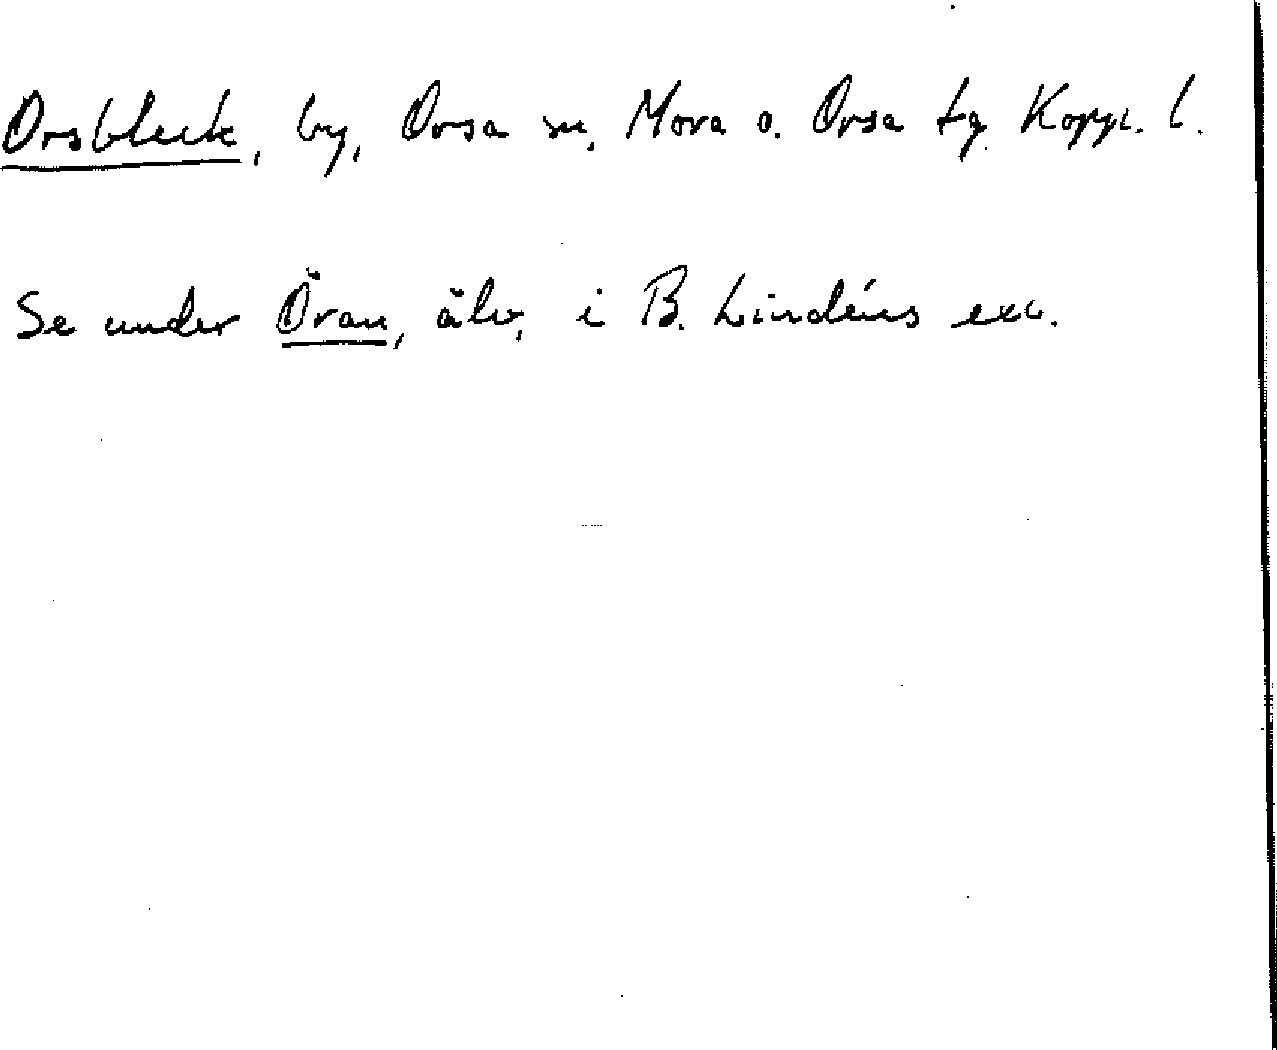 Orsbleck, by, Orsa sn, Mora o. Orsa tg. Kopp. l.
Se under Öran, älv, i B. Lindéns exc.